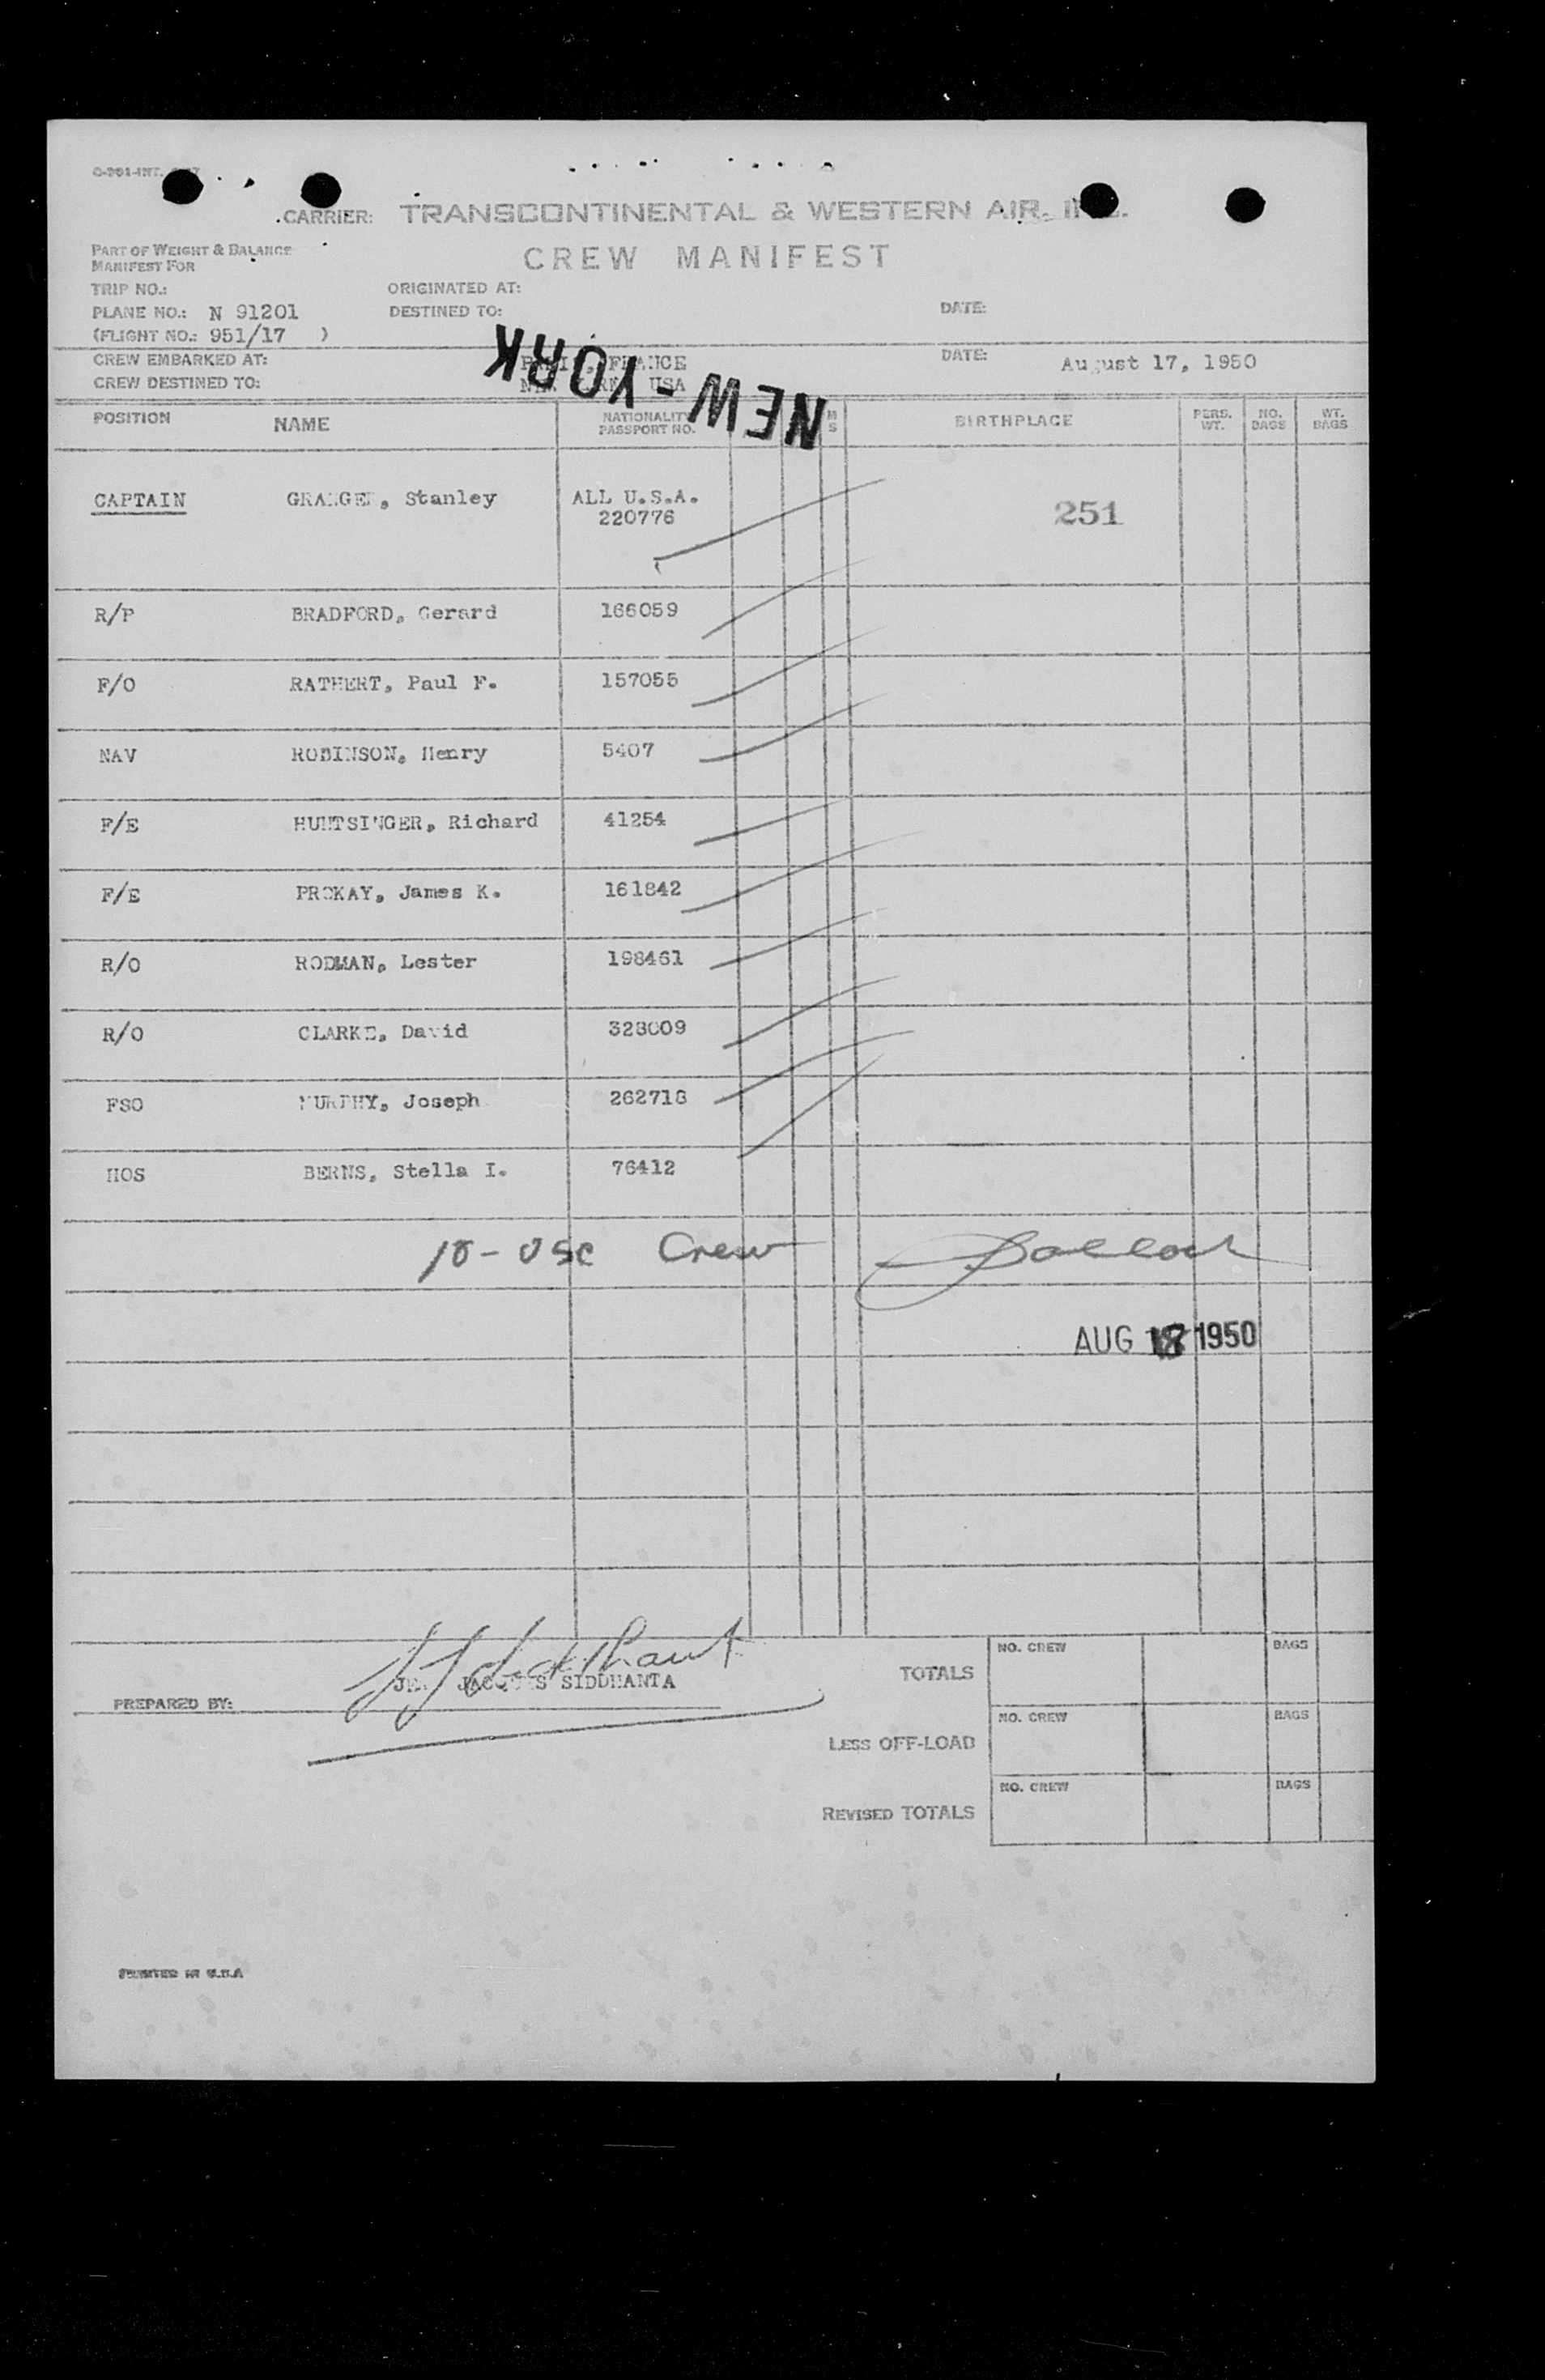 CARRIER: TRANSCONTINENTAL & WESTERN AIR, INC.
PART OF WEIGHT & BALANCE
MANIFEST FOR
CREW MANIFEST
TRIP NO.:
ORIGINATED AT:
PLANE NO.: N 91201
DESTINED TO:
DATE:
(FLIGHT NO.: 951/17 )
CREW EMBARKED AT: PARIS, FRANCE
DATE: August 17, 1950
CREW DESTINED TO: NEW YORK, USA
NEW-YORK
POSITION NAME NATIONALITY PASSPORT NO. M S BIRTHPLACE PERS. WT. NO. BAGS WT. BAGS
CAPTAIN Stanley ALL U.S.A.
220776
251
R/P BRADFORD, Gerard 166059
F/O RATHERT, Paul F. 157055
NAV ROBINSON, Henry 5407
F/E HUNTSINGER, Richard 41254
F/E PROKAY, James K. 161842
R/O RODMAN, Lester 198461
R/O CLARKE, David
FSO MURPHY, Joseph
HOS BERNS, Stella I. 76412
10-USC Crew
AUG 1950
PREPARED BY: JACQUES SIDDHANTA
TOTALS NO. CREW BAGS
LESS OFF-LOAD NO. CREW BAGS
REVISED TOTALS NO. CREW BAGS
PRINTED IN U.S.A